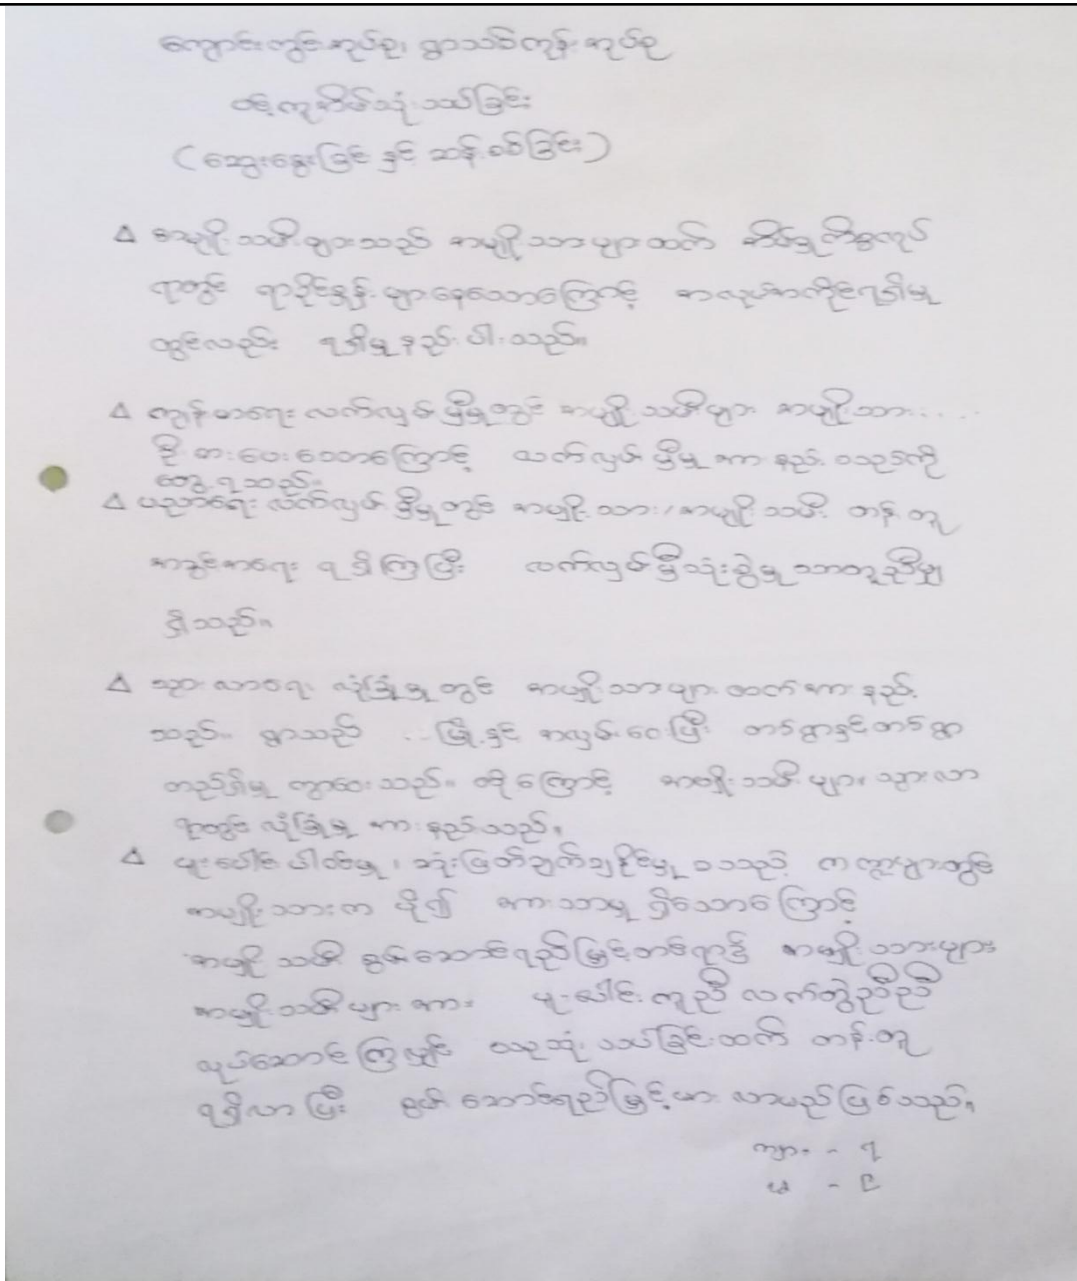 ကျောင်းတွင်းအုပ်စု၊ ရွာသစ်ကုန်းအုပ်စု
ပင့်ကူအိမ်သုံးသပ်ခြင်း
(ဆွေးနွေးခြင်း နှင့် ဆန်းစစ်ခြင်း)
Δ အမျိုးသမီးများသည် အမျိုးသားများထက် အိမ်မှုကိစ္စလုပ်
ရာတွင် ရာခိုင်နှုန်းများနေသောကြောင့် အလုပ်အကိုင်ရရှိမှု
တွင်လည်း ရရှိမှုနည်းပါးသည်။
Δ ကျန်းမာရေး လက်လှမ်းမှီမှုတွင် အမျိုးသမီးများ အမျိုးသား....
စိုးတားပေးသောကြောင့် လက်လှမ်းမှီမှု အားနည်းသည်ကို
တွေ့ရသည်။
Δ ပညာရေး လက်လှမ်းမှီမှုတွင် အမျိုးသား/အမျိုးသမီး တန်းတူ
အခွင့်အရေး ရရှိကြပြီး လက်လှမ်းမှီသုံးစွဲမှု သာတူညီမျှ
ရှိသည်။
Δ သွားလာရေး လုံခြုံမှုတွင် အမျိုးသားများထက်အားနည်း
သည်။ ရွာသည် .. မြို့နှင့် အလှမ်းဝေးပြီး တစ်ရွာနှင့်တစ်ရွာ
တည်ရှိမှု ကွာဝေးသည်။ ထို့ကြောင့် အမျိုးသမီးများ သွားလာ
ရာတွင် လုံခြုံမှု အားနည်းသည်။
Δ ပူးပေါင်းပါဝင်မှု၊ ဆုံးဖြတ်ချက်ချနိုင်မှု စသည့် ကဏ္ဍများတွင်
အမျိုးသားက ပို၍ အားသာမှု ရှိသောကြောင့်
အမျိုးသမီး စွမ်းဆောင်ရည်မြှင့်တင်ရာ၌ အမျိုးသားများ
အမျိုးသမီးများအား ပူးပေါင်းကူညီ လက်တွဲညီညီ
လုပ်ဆောင်ကြလျှင် ယခုသုံးသပ်ခြင်းထက် တန်းတူ
ရရှိလာပြီး စွမ်းဆောင်ရည်မြှင့်မား လာမည်ဖြစ်သည်။
ကျား - ၇
မ - ၉